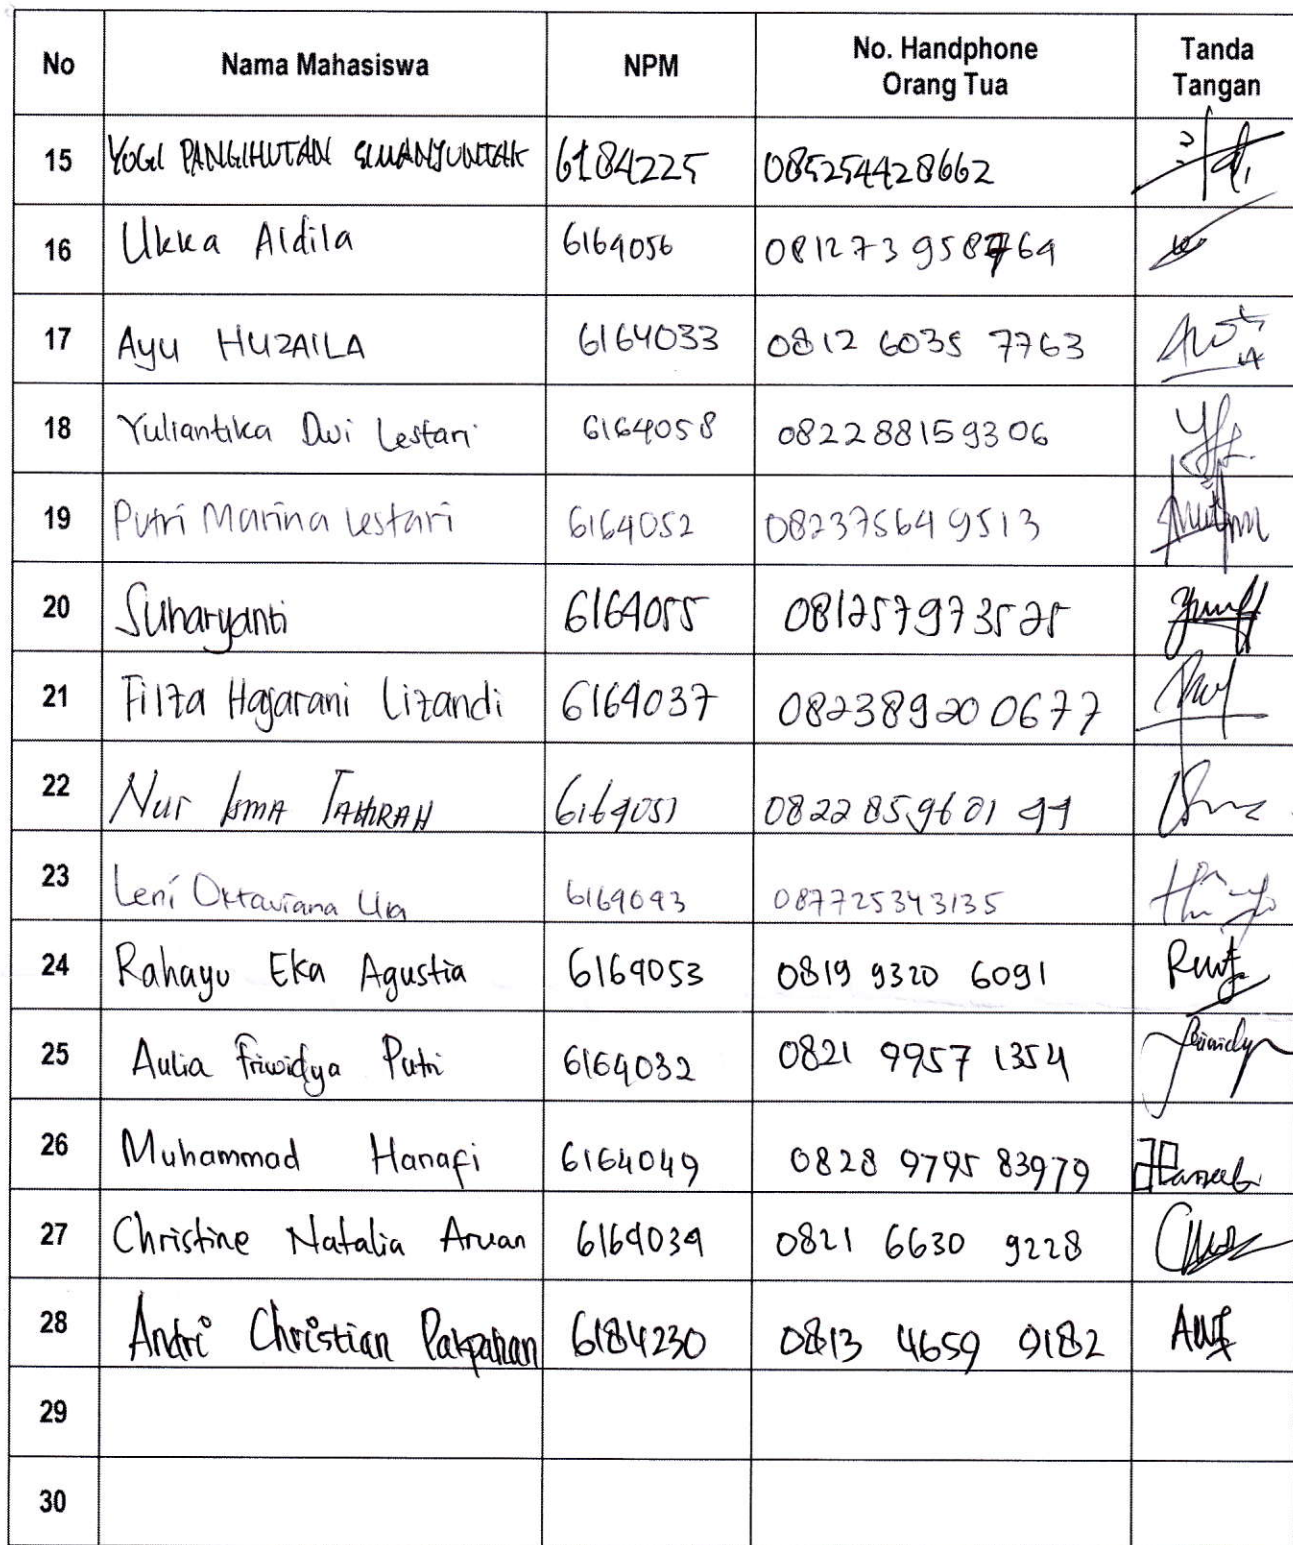 No Nama Mahasiswa NPM No. Handphone Orang Tua Tanda Tangan
15 YOGI PANGIHUTAN SIMANJUNTAK 6184225 085254428662
16 Ukka Aldila 6164056 081273958764
17 Ayu HUZAILA 6164033 0812 6035 7763
18 Yuliantika Dwi Lestari 6164058 082288159306
19 Putri Marina Lestari 6164052 082375649513
20 Suharyanti 6164055 081257973525
21 Filza Hajarani Lizandi 6164037 082389200677
22 Nur ISMA TAHIRAH 6164051 082285960144
23 Leni Oktaviana 6164043 087725343135
24 Rahayu Eka Agustia 6164053 0819 9320 6091
25 Aulia Friwidya Putri 6164032 0821 9957 1354
26 Muhammad Hanafi 6164049 0828 9795 83979
27 Christine Natalia Aruan 6164034 0821 6630 9228
28 Andri Christian Pakpahan 6184230 0813 4659 9182
29
30